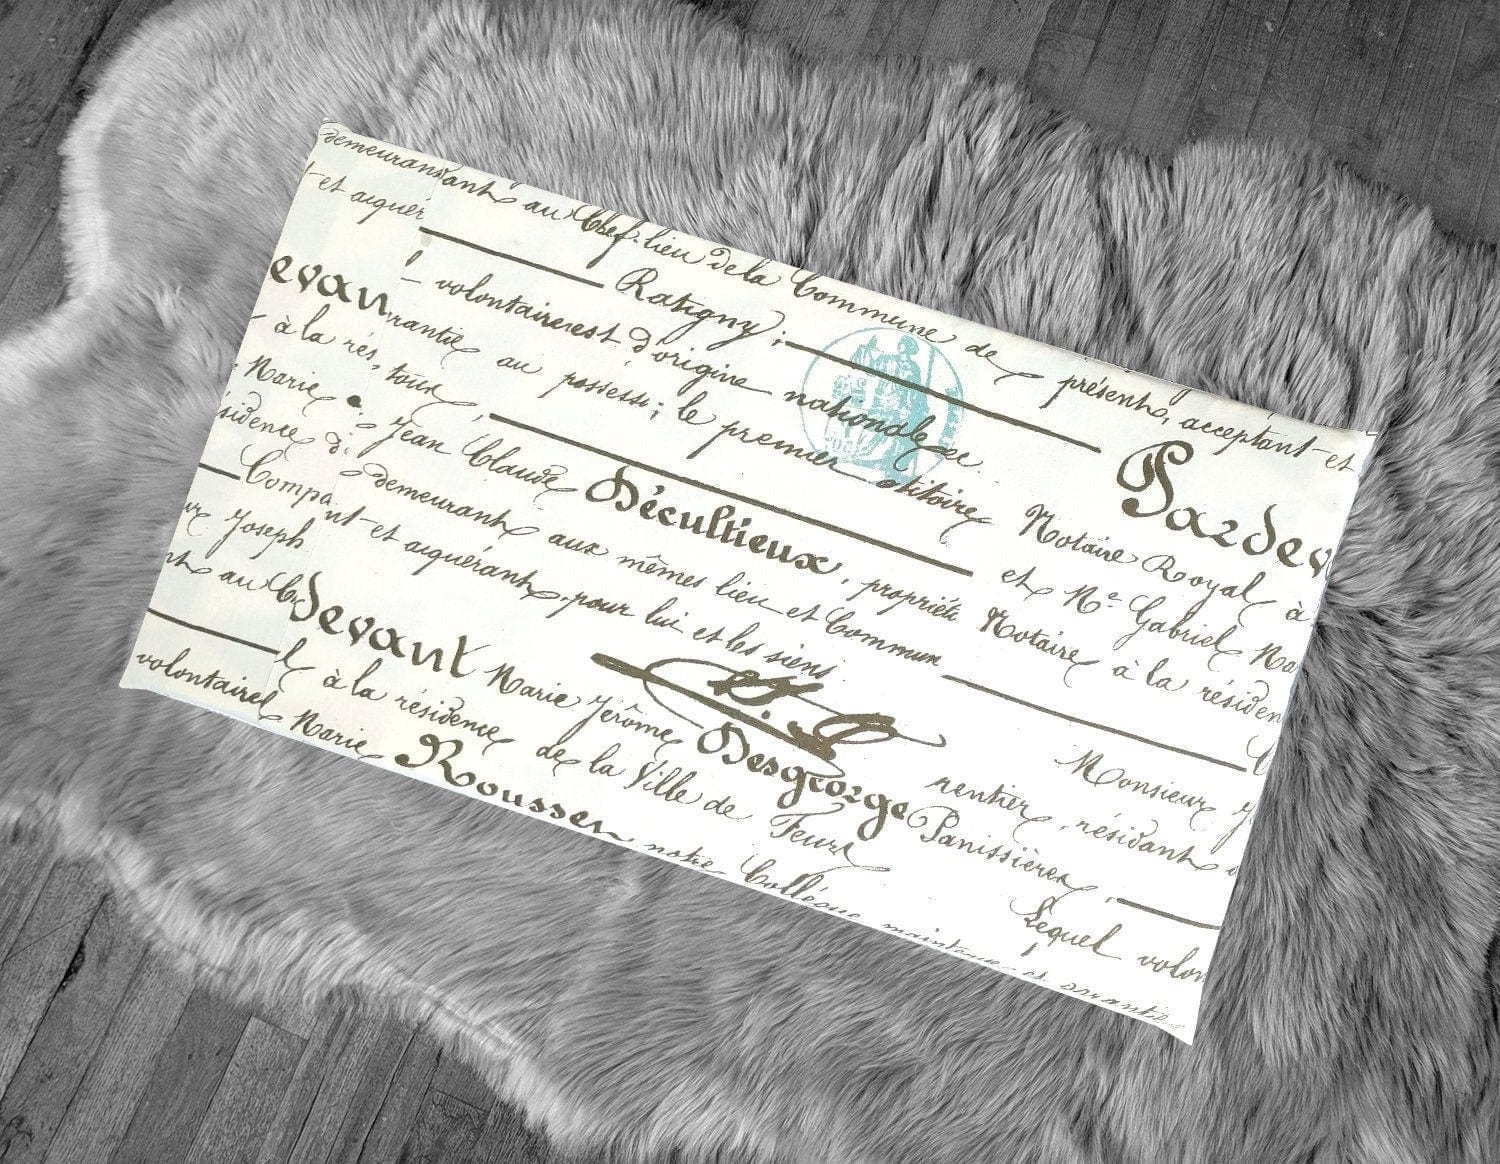 demeurant au Chef-lieu de la Commune de
présent, acceptant et
et aiguér Ratigny;
Pardev
l volontaire est d'origine nationale
Notaire Royal à
evan rantie au possess; le premier
et Mᵉ Gabriel
à la rés tous
Notaire à la résiden
Marie Jean Claude Décultieux, propriété
sidence
demeurant aux mêmes lieu et Commun
Monsieur
Compa nt et aiguérant, pour lui et les siens
ur Joseph
rentier, résidant
nt au devant Marie Jérôme Desgeorge
Panissières,
l à la résidence de la Ville de Feurs
Lequel volon
volontaire
Marie Rousset notre Collègue maintenue et garantie